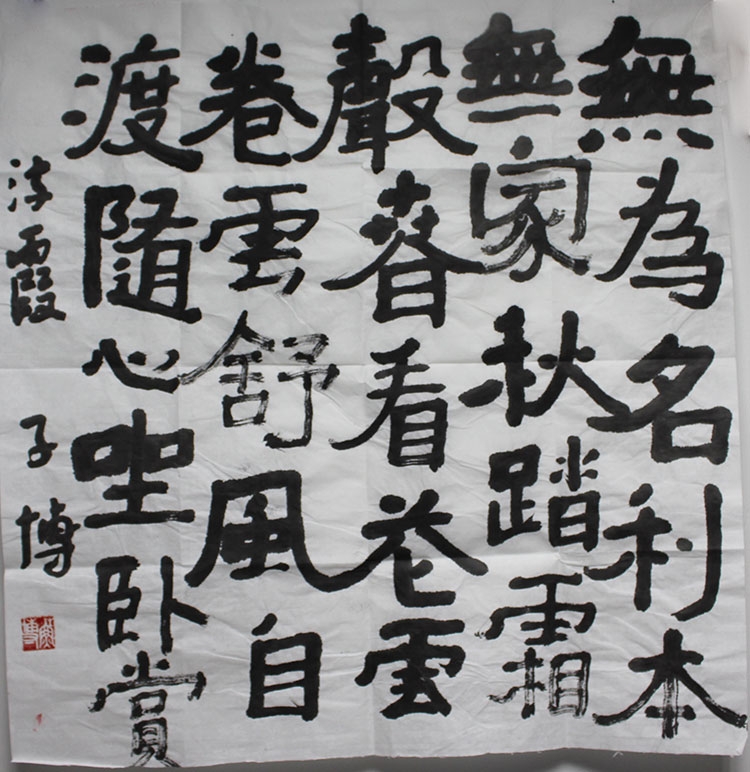 無為名利本
無家秋踏霜
聲春看花雲
卷雲舒風自
渡隨心坐臥賞
浮霞 子博